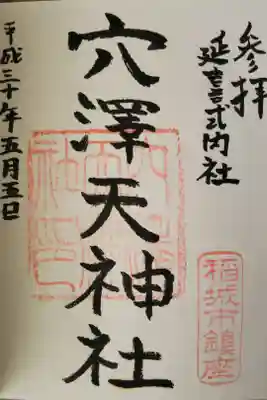 参拝
延喜式内社
穴澤天神社
稲城市鎮座
平成三十年五月五日